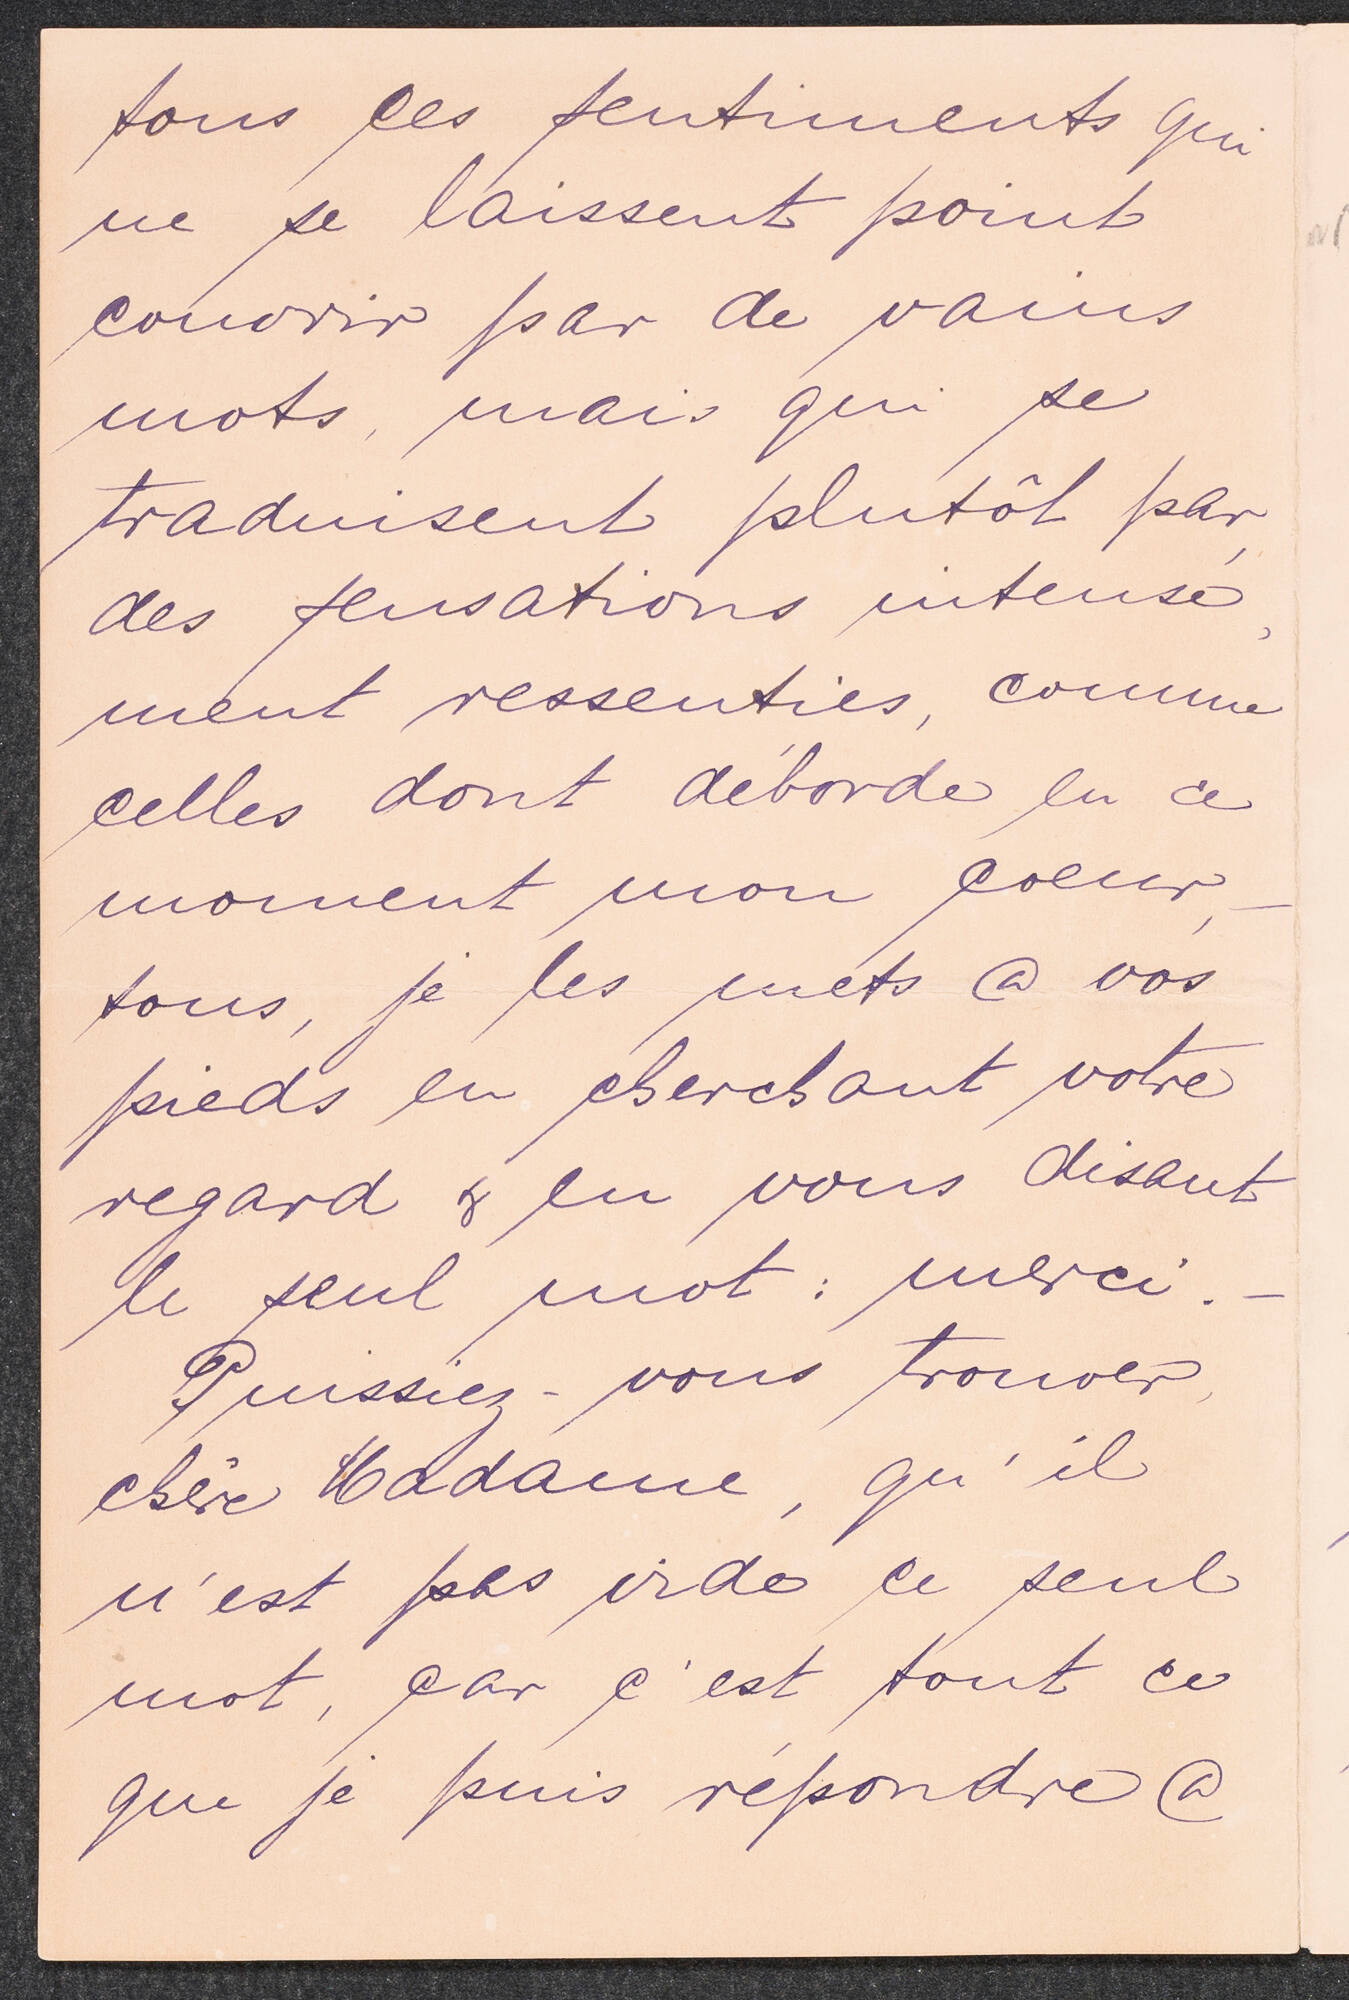 tous ces sentiments qui
ne se laissent point
couvrir par de vains
mots, mais qui se
traduisent plutôt par
des sensations intensé
ment ressenties, comme
celles dont déborde en ce
moment mon coeur, –
tous, je les mets @ vos
pieds en cherchant votre
regard & en vous disant
le seul mot : merci. –
Puissiez-vous trouver,
chère Madame, qu'il
n'est pas vide ce seul
mot, car c'est tout ce
que je puis répondre @